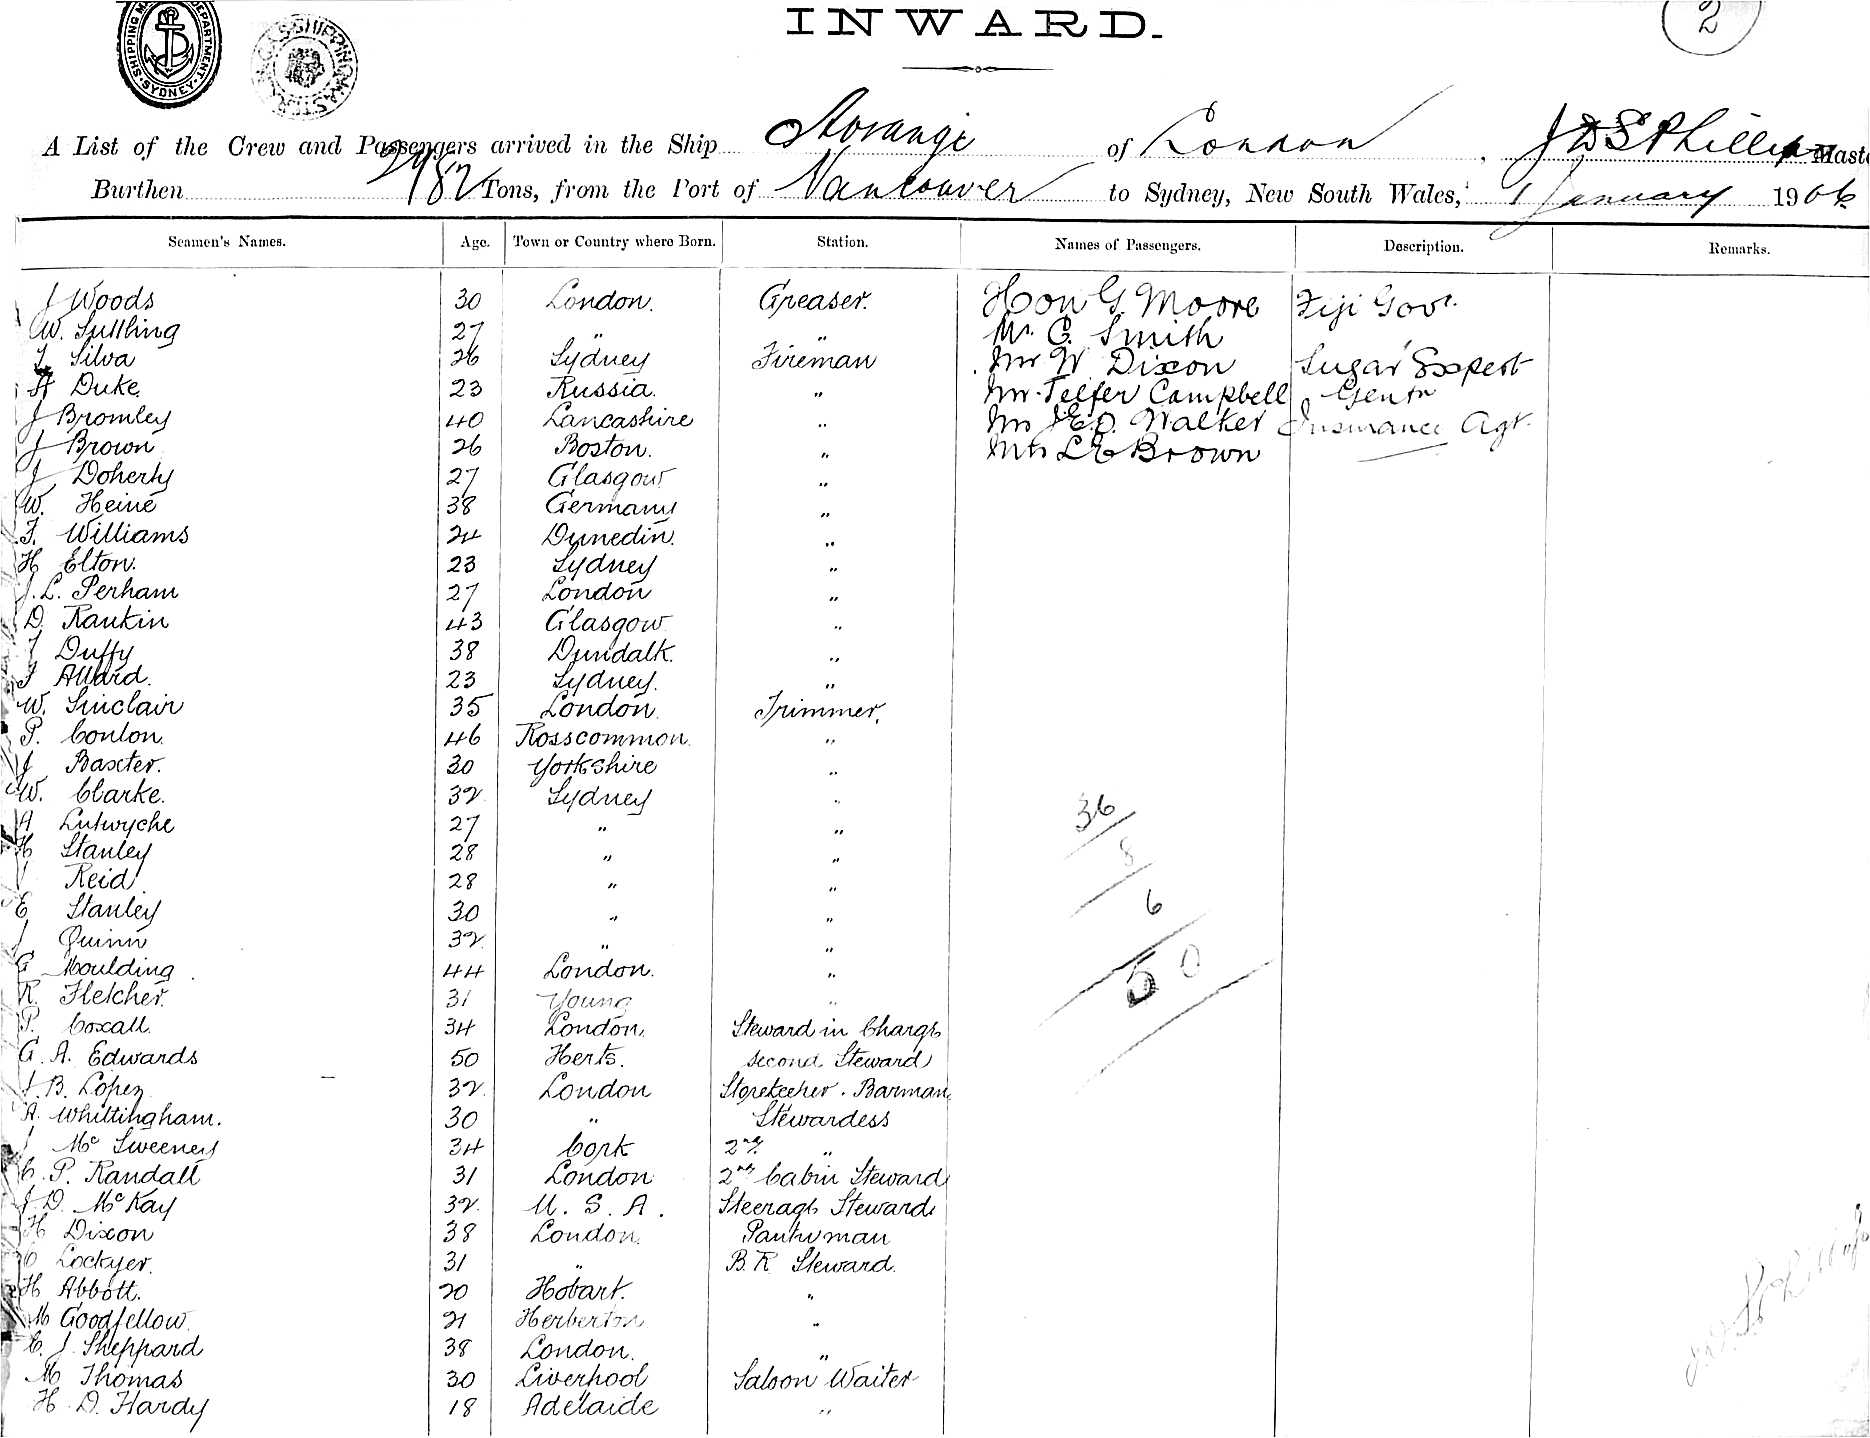 INWARD.
2
SHIPPING MASTER'S DEPARTMENT SYDNEY
A List of the Crew and Passengers arrived in the Ship Aorangi of London, J D S Phillips Maste
Burthen 2782 Tons, from the Port of Vancouver to Sydney, New South Wales, 1 January 1906
Seamen's Names. Age. Town or Country where Born. Station. Names of Passengers. Description. Remarks.
J Woods 30 London. Greaser. Hon G. Moore Fiji Govt.
W. 27 " " Mr C. Smith
Silva 26 Sydney Fireman Mr W Dixon Sugar Expert
A Duke. 23 Russia. " Mr Telfer Campbell Gentn
J Bromley 40 Lancashire " Mr J.E.D. Walker Insurance Agt.
J Brown 26 Boston. " Mrs L E Brown
J Doherty 27 Glasgow "
W. Heine 38 Germany "
F. Williams 24 Dunedin. "
H Elton. 23 Sydney "
J. L. Perham 27 London "
D. Rankin 43 Glasgow "
J Duffy 38 Dundalk. "
J Allard. 23 Sydney. "
W. Sinclair 35 London. Trimmer.
P. Conlon. 46 Rosscommon. "
J Baxter. 30 Yorkshire "
W. Clarke. 32 Sydney "
A Lutwyche 27 " "
H Stanley 28 " "
J Reid 28 " "
E Stanley 30 " "
J Quinn 32 " "
G Moulding 44 London. "
R. Fletcher. 31 Young "
P. Coxall. 34 London. Steward in Charge
G. A. Edwards 50 Herts. Second Steward
J. B. Lopez 32 London Storekeeper . Barman
A. Whittingham. 30 " Stewardess
J McSweeney 34 Cork 2nd "
C. P. Randall 31 London 2nd Cabin Steward
J. D. McKay 32 U. S. A. Steerage Steward
H Dixon 38 London. Pantryman
Lockyer. 31 " B. R Steward.
H Abbott. 20 Hobart. "
M Goodfellow. 21 Herberton "
C. J. Sheppard 38 London. "
M Thomas 30 Liverpool Saloon Waiter
H. D. Hardy 18 Adelaide "
36
8
6
50